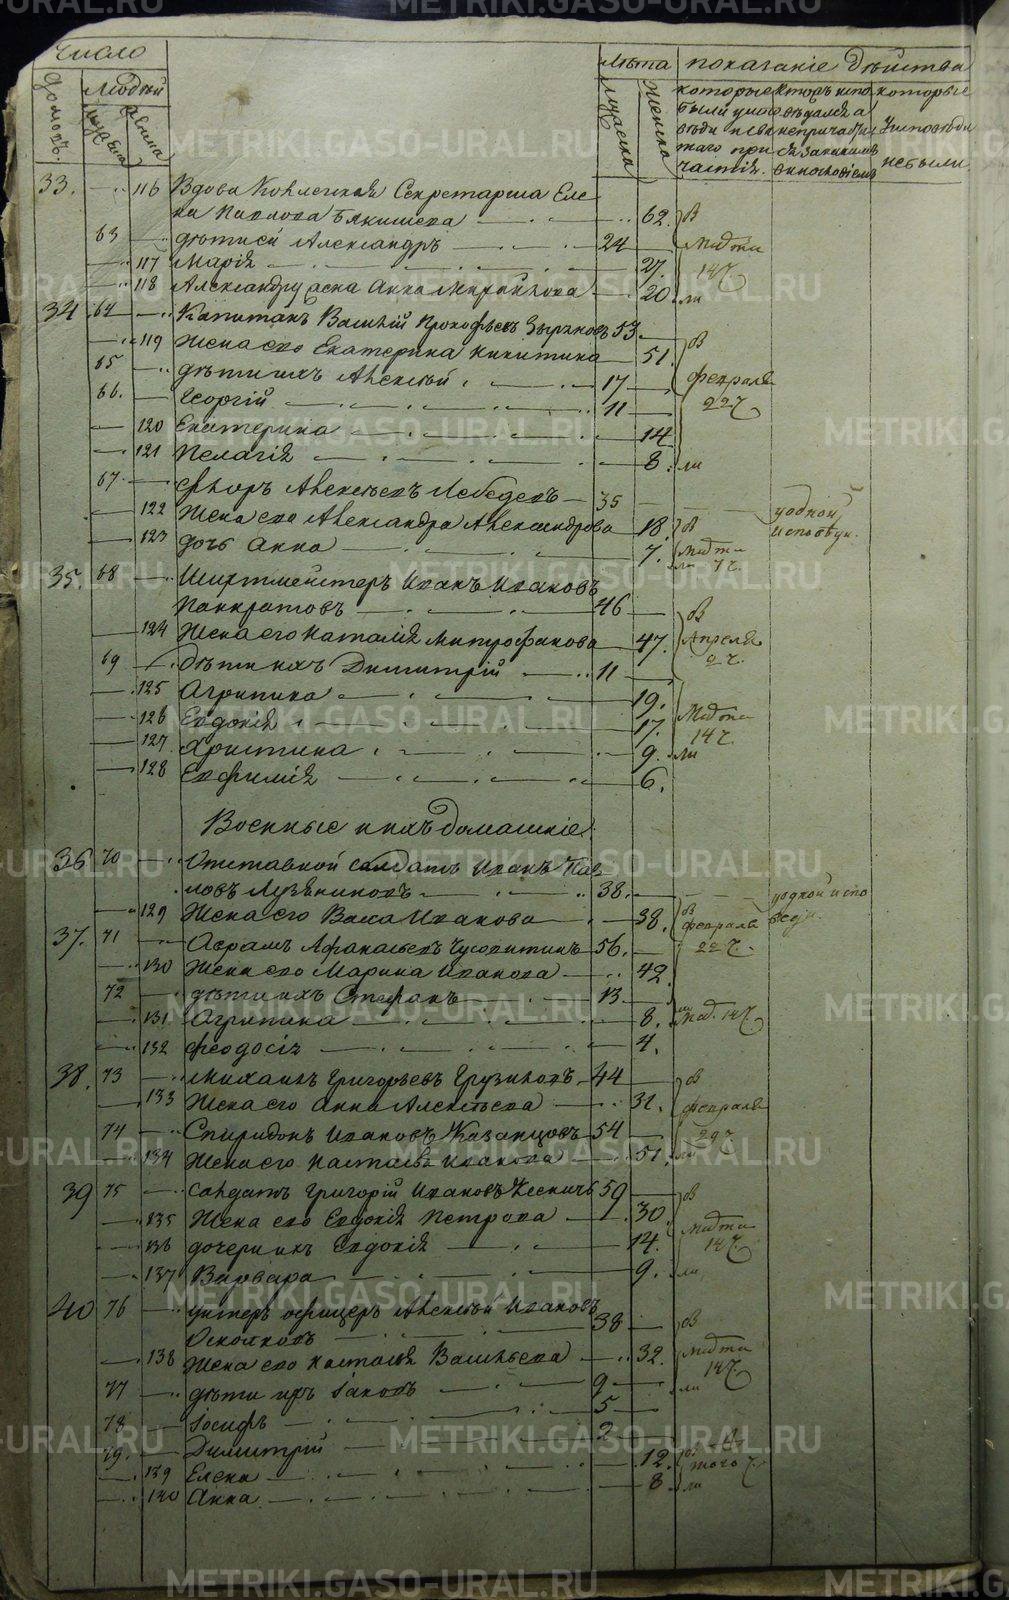 Число
домовъ.
людей
мужеска
женска
лѣта
мужеска
женска
показаніе дѣйства
которые
были у испо
вѣди и свя
таго при
частія.
которыя испо
вѣдался а
непричащал
ся за каким
винословіемъ
которые
у исповѣди
не были.
33. 116 Вдова Коллежская Секретарша Еле
на Павлова 62. в
63 дѣти ей Александръ 24 марта
117 Марія 27. 14ч.
118 Александру жена Анна 20. ли
34. 64 Капитанъ Василій Прокофьевъ Зыряновъ 53.
119 Жена его Екатерина Никитина 51. в
65 дѣти ихъ Алексѣй 17 февраля
66. Георгій 11 22ч.
120 Екатерина 14.
121 Пелагія 8. ли
67. Ѳедоръ Алексѣевъ Лебедевъ 35 у одной
122 Жена его Александра Александрова 18. в исповѣди.
123 дочь Анна 7. марта
ли 7ч.
35. 68 Шихтмейстеръ Иванъ Ивановъ
Панкратовъ 46 в
124 Жена его Наталія Митрофанова 47. Апреля
69 дѣти ихъ Димитрій 11 2ч.
125 Агрипина 19.
126 Евдокія 17. марта
127 Христина 9. 14ч. ли
128 Евфимія 6.
Военные и ихъ домашніе.
36 70 Отставной солдатъ Иванъ Пав
ловъ Лузянинъ 38. у одной испо
129 Жена его Васса Иванова 38. в вѣди.
февраля
37. 71 Аврамъ Афанасьевъ Чусовитинъ 56. 22ч.
130 Жена его Марина Иванова 42.
72 дѣти ихъ Стефанъ 13
131 Агрипина 8. мар. 14ч.
132 Феодосія 4.
38. 73 Михаилъ Григорьевъ Грузиновъ 44 в
133 Жена его Анна Алексѣева 31. февраля
74 Спиридонъ Ивановъ Казанцовъ 54 29ч.
134 Жена его Настасья Иванова 51. ли
39 75 Солдатъ Григорій Ивановъ 59 в
135 Жена его Евдокія Петрова 30. марта
136 дочери ихъ Евдокія 14. 14ч.
137 Варвара 9. ли
40 76 унтеръ офицеръ Алексѣй Ивановъ
Осколковъ 38 в
138 Жена его Настасья Васильева 32. марта
14ч.
77 дѣти ихъ Іаковъ 9 ли
78 Іосифъ 5
79. Димитрій 2
139 Елена 12. того ч.
140 Анна 8. ли
METRIKI.GASO-URAL.RU